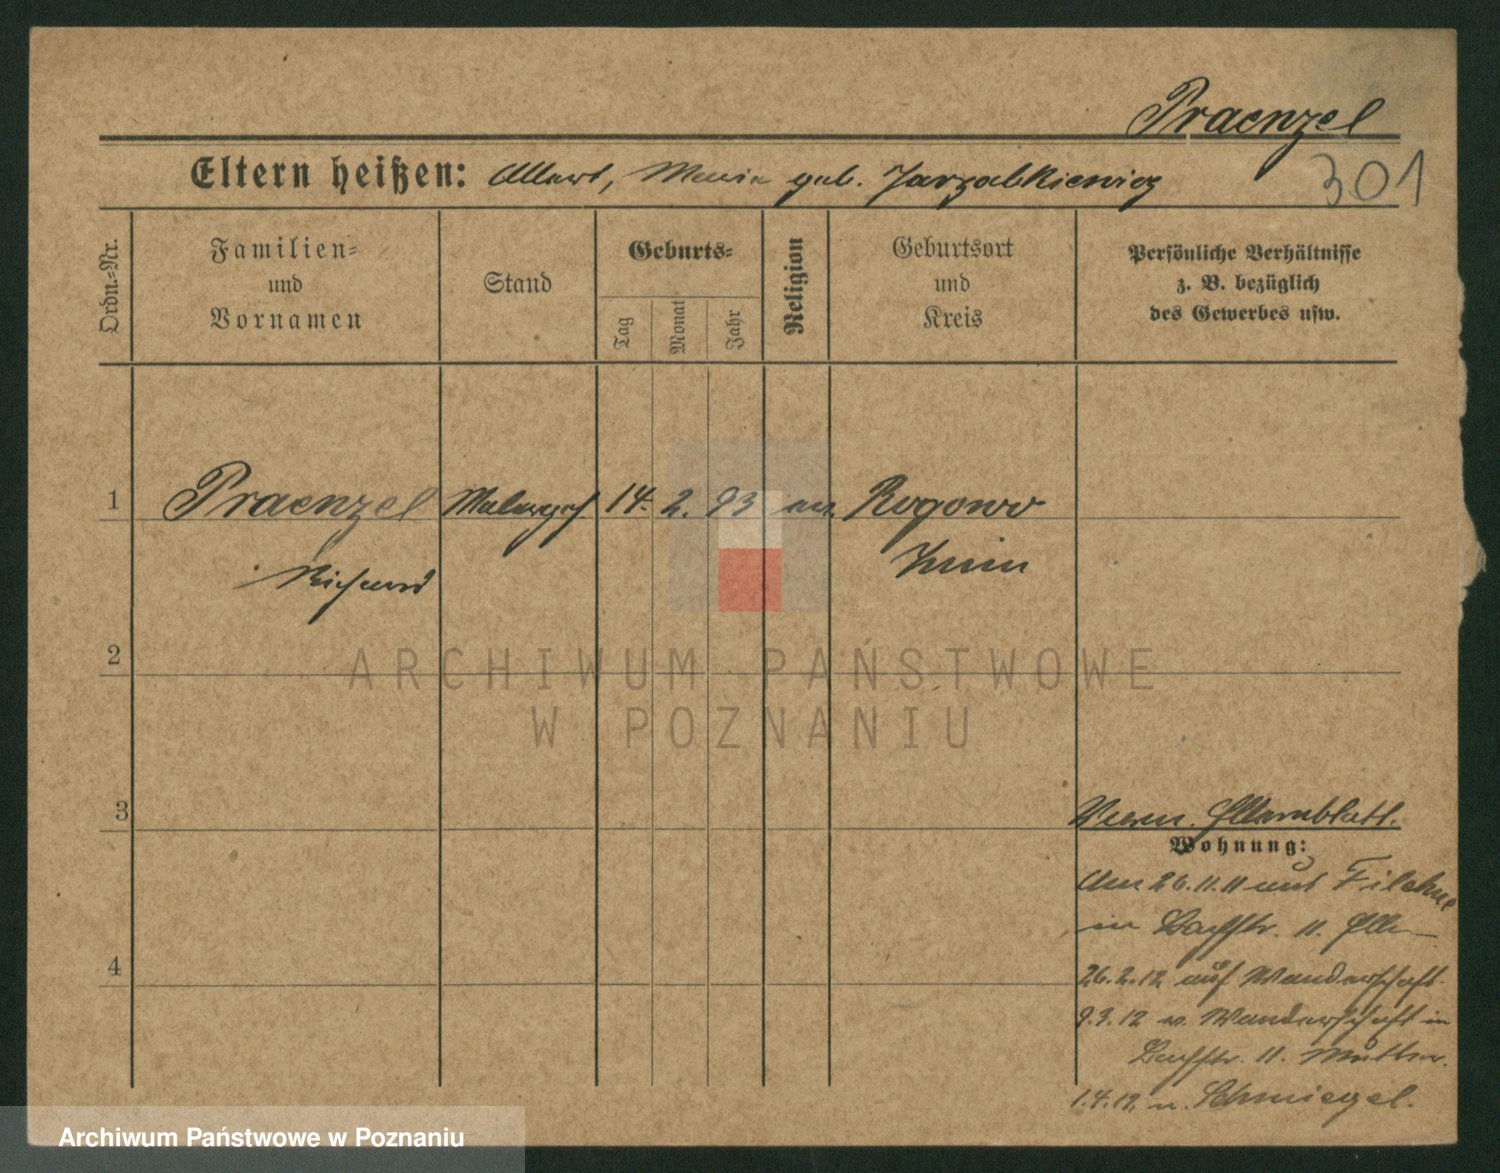 Praenzel
Eltern heißen: Albert, Maria geb. Jarzabkiewicz
301
Ordn.-Nr.
Familien-
und
Vornamen
Stand
Geburts-
Tag
Monat
Jahr
Religion
Geburtsort
und
Kreis
Persönliche Verhältnisse
z. B. bezüglich
des Gewerbes usw.
1 Praenzel Malergeh. 14. 2. 93 ev. Rogowo
Richard Znin
2
ARCHIWUM PAŃSTWOWE
W POZNANIU
3
Elternblatt.
Wohnung:
Am 26.11.11 aus Filehne
in Bachstr. 11. Elt
4
26.2.12 auf Wanderschaft
9.3.12 v. Wanderschaft in
Bachstr. 11. Mutter.
1.4.12. n. Schmiegel.
Archiwum Państwowe w Poznaniu